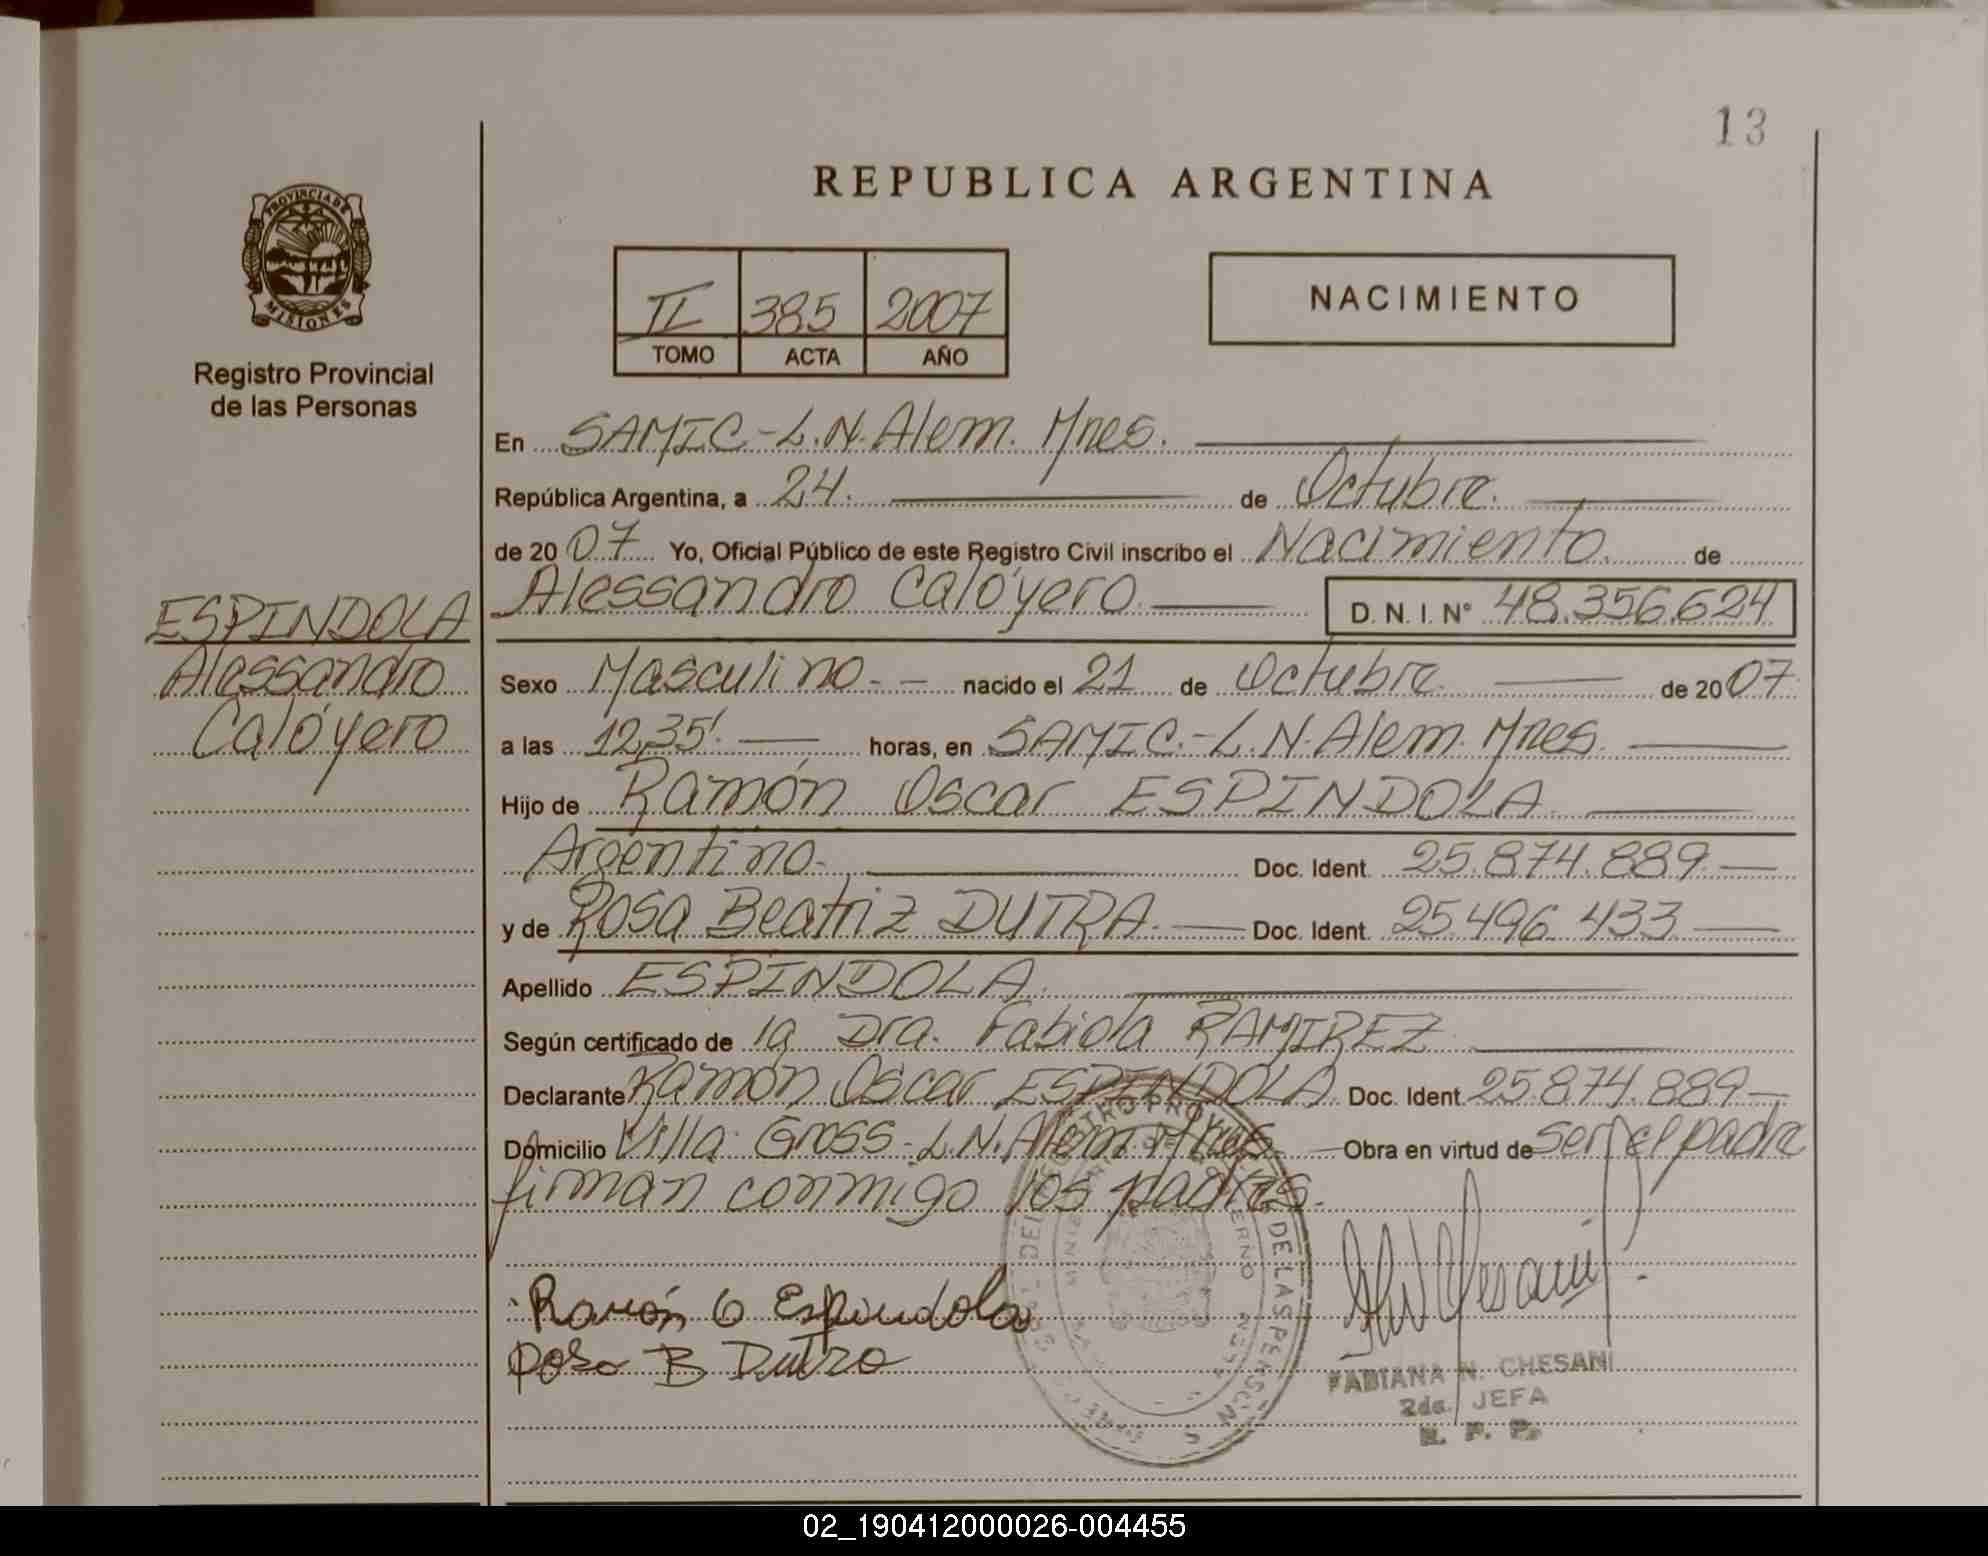 13
REPUBLICA ARGENTINA
PROVINCIA DE
MISIONES
Registro Provincial
de las Personas
II 385 2007
TOMO ACTA AÑO
NACIMIENTO
En SAMIC-L.N.Alem. Mnes.
República Argentina, a 24. de Octubre.
de 2007 Yo, Oficial Público de este Registro Civil inscribo el Nacimiento. de
Alessandro Calóyero D. N. I. Nº 48.356.624
ESPINDOLA
Alessandro
Calóyero
Sexo Masculino.- nacido el 21 de Octubre de 2007
a las 12,35' horas, en SAMIC.-L.N.Alem. Mnes.
Hijo de Ramón Oscar ESPINDOLA
Argentino.- Doc. Ident. 25.874.889.
y de Rosa Beatriz DUTRA. Doc. Ident. 25.496.433
Apellido ESPINDOLA.
Según certificado de la Dra. Fabiola RAMIREZ
Declarante Ramón Oscar ESPINDOLA Doc. Ident. 25.874.889-
Domicilio Villa Gross-L.N.Alem Mnes Obra en virtud de ser el padre
firman conmigo los padres.
Ramón O Espindola
Rosa B Dutra
FABIANA N. CHESANI
2da. JEFA
R. P. P.
02_190412000026-004455